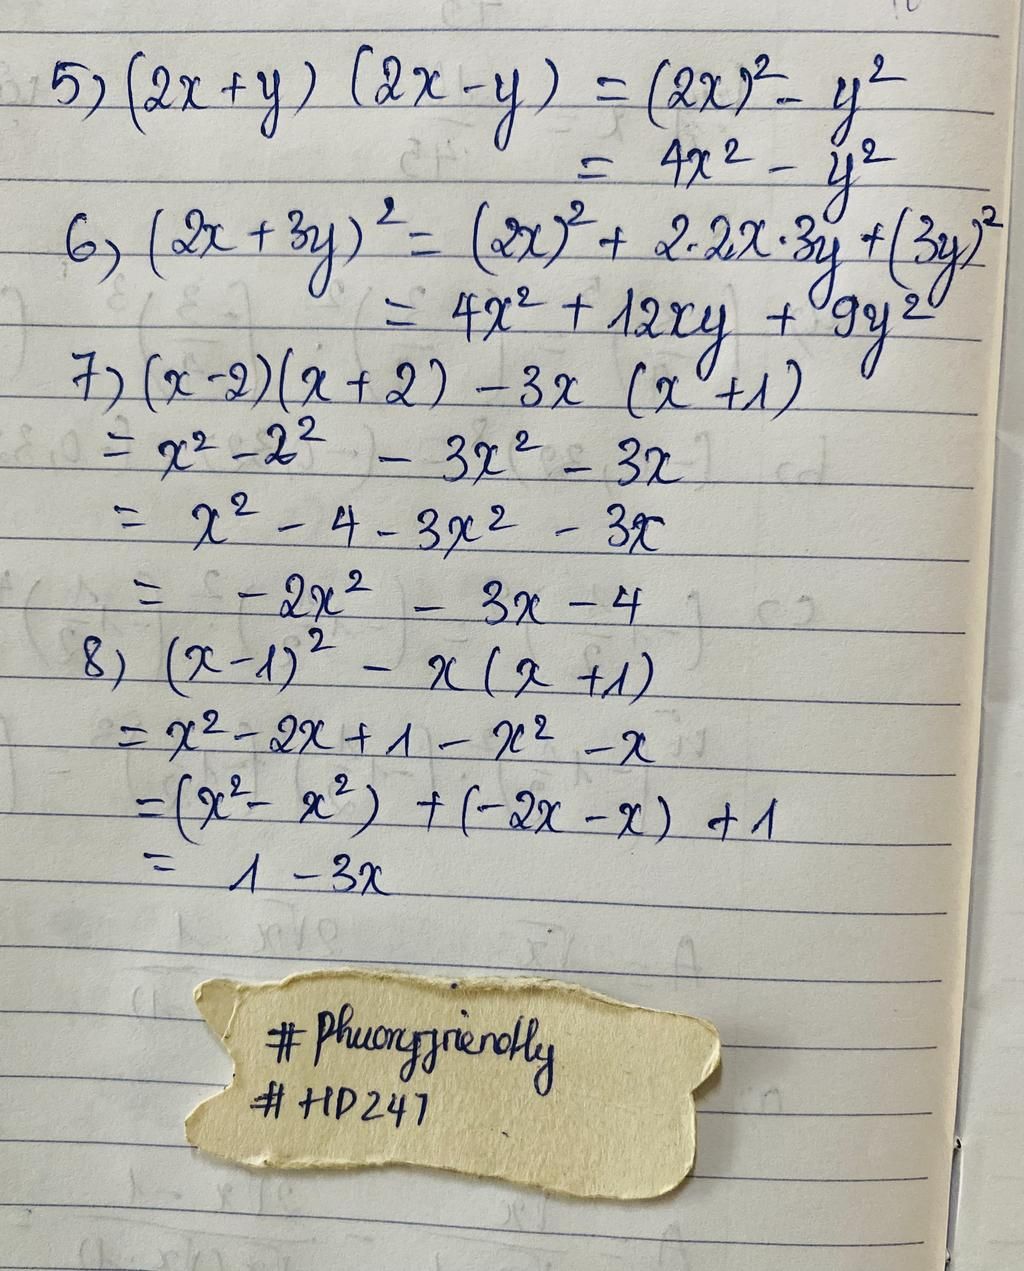 5) (2x+y) (2x-y) = (2x)² - y²
= 4x² - y²
6) (2x+3y)² = (2x)² + 2.2x.3y + (3y)²
= 4x² + 12xy + 9y²
7) (x-2)(x+2) - 3x (x+1)
= x² - 2² - 3x² - 3x
= x² - 4 - 3x² - 3x
= -2x² - 3x - 4
8) (x-1)² - x(x+1)
= x² - 2x + 1 - x² - x
= (x² - x²) + (-2x - x) + 1
= 1 - 3x
# Phuongfriendly
# HD247